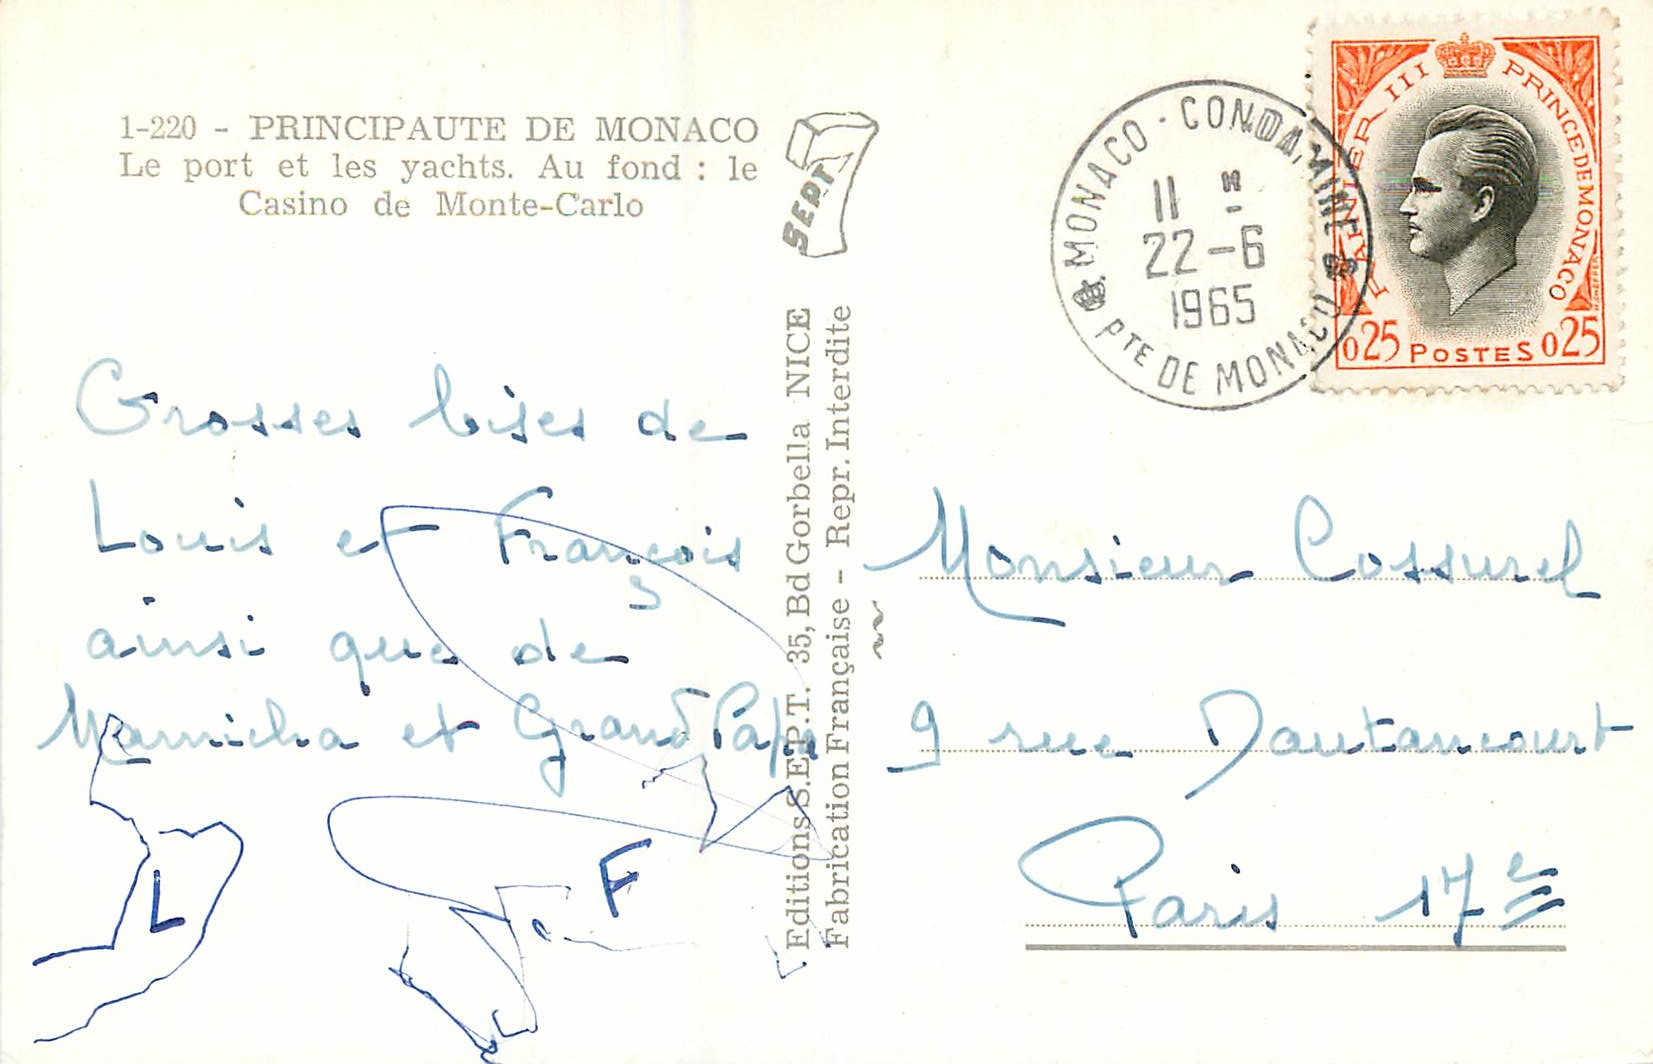 1-220 - PRINCIPAUTE DE MONACO
Le port et les yachts. Au fond : le
Casino de Monte-Carlo
SEPT
Grosses bises de
Louis et François
ainsi que de
Mamicha et Grand Papa
L
F
Editions S.E.P.T. 35, Bd Gorbella NICE
Fabrication Française - Repr. Interdite
MONACO - CONDAMINE
11 H
22-6
1965
PTE DE MONACO
RAINIER III PRINCE DE MONACO
0.25 POSTES 0.25
Monsieur Cossurel
9 rue Dautancourt
Paris 17e